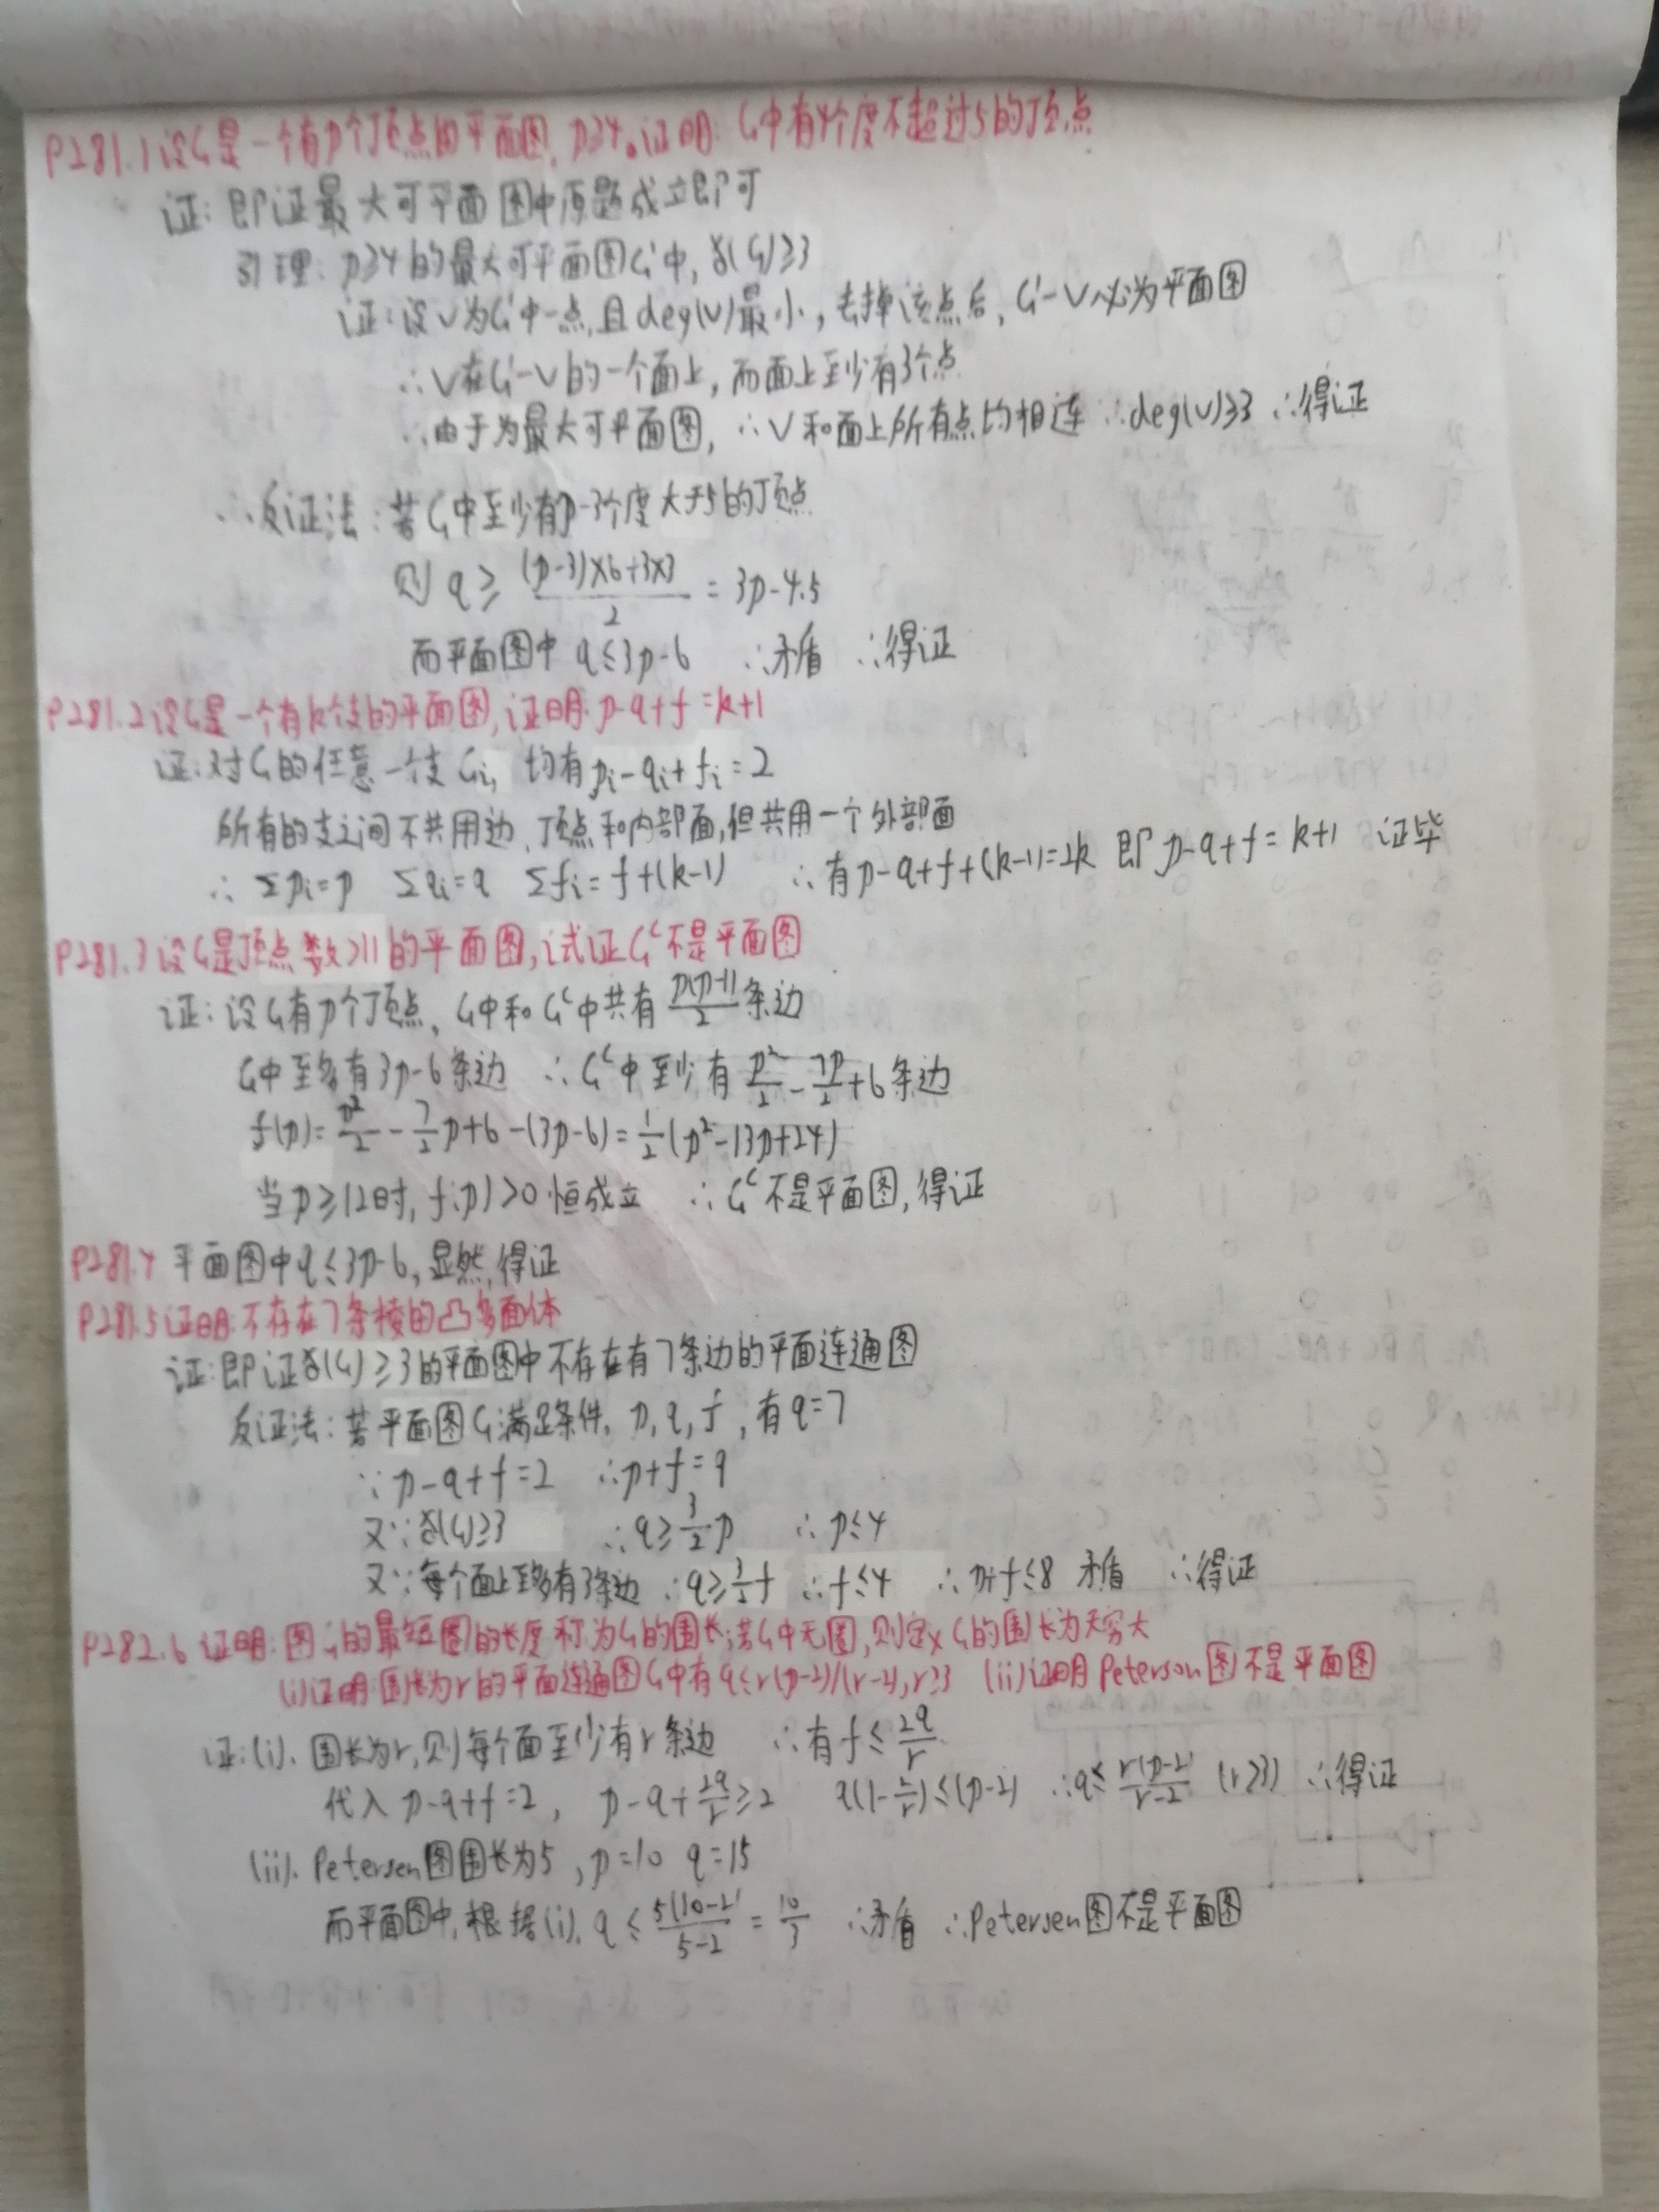 P281.1 设G是一个有p个顶点的平面图, p≥4。证明: G中有4个度不超过5的顶点
证: 即证最大可平面图中原题成立即可
引理: p≥4的最大可平面图G'中, δ(G)≥3
证: 设v为G'中一点, 且deg(v)最小, 去掉该点后, G'-v必为平面图
∴v在G'-v的一个面上, 而面上至少有3个点
∴由于为最大可平面图, ∴v和面上所有点均相连 ∴deg(v)≥3 ∴得证
∴反证法: 若G中至少有p-3个度大于5的顶点
则 q ≥ ((p-3)×6+3×3)/2 = 3p-4.5
而平面图中 q≤3p-6 ∴矛盾 ∴得证
P281.2 设G是一个有k个支的平面图, 证明: p-q+f=k+1
证: 对G的任意一支Gi, 均有pi-qi+fi=2
所有的支之间不共用边、顶点和内部面, 但共用一个外部面
∴ Σpi=p Σqi=q Σfi=f+(k-1) ∴有p-q+f+(k-1)=2k 即p-q+f=k+1 证毕
P281.3 设G是顶点数≥11的平面图, 试证G^c不是平面图
证: 设G有p个顶点, G中和G^c中共有p(p-1)/2条边
G中至多有3p-6条边 ∴G^c中至少有p²/2-7p/2+6条边
f(p)=p²/2-7/2p+6-(3p-6)=1/2(p²-13p+24)
当p≥12时, f(p)>0恒成立 ∴G^c不是平面图, 得证
P281.4 平面图中q≤3p-6, 显然, 得证
P281.5 证明: 不存在7条棱的凸多面体
证: 即证δ(G)≥3的平面图中不存在有7条边的平面连通图
反证法: 若平面图G满足条件, p, q, f, 有q=7
∵p-q+f=2 ∴p+f=9
又∵δ(G)≥3 ∴q≥3/2 p ∴p≤4
又∵每个面上至多有3条边 ∴q≥3/2 f ∴f≤4 ∴p+f≤8 矛盾 ∴得证
P282.6 证明: 图G的最短圈的长度称为G的围长; 若G中无圈, 则定义G的围长为无穷大
(i)证明: 围长为r的平面连通图G中有q≤r(p-2)/(r-2), r≥3 (ii)证明Peterson图不是平面图
证: (i). 围长为r, 则每个面至少有r条边 ∴有f≤2q/r
代入p-q+f=2, p-q+2q/r≥2 q(1-2/r)≤(p-2) ∴q≤r(p-2)/(r-2) (r≥3) ∴得证
(ii). Petersen图围长为5, p=10 q=15
而平面图中, 根据(i), q ≤ 5(10-2)/(5-2) = 10/3 ∴矛盾 ∴Petersen图不是平面图